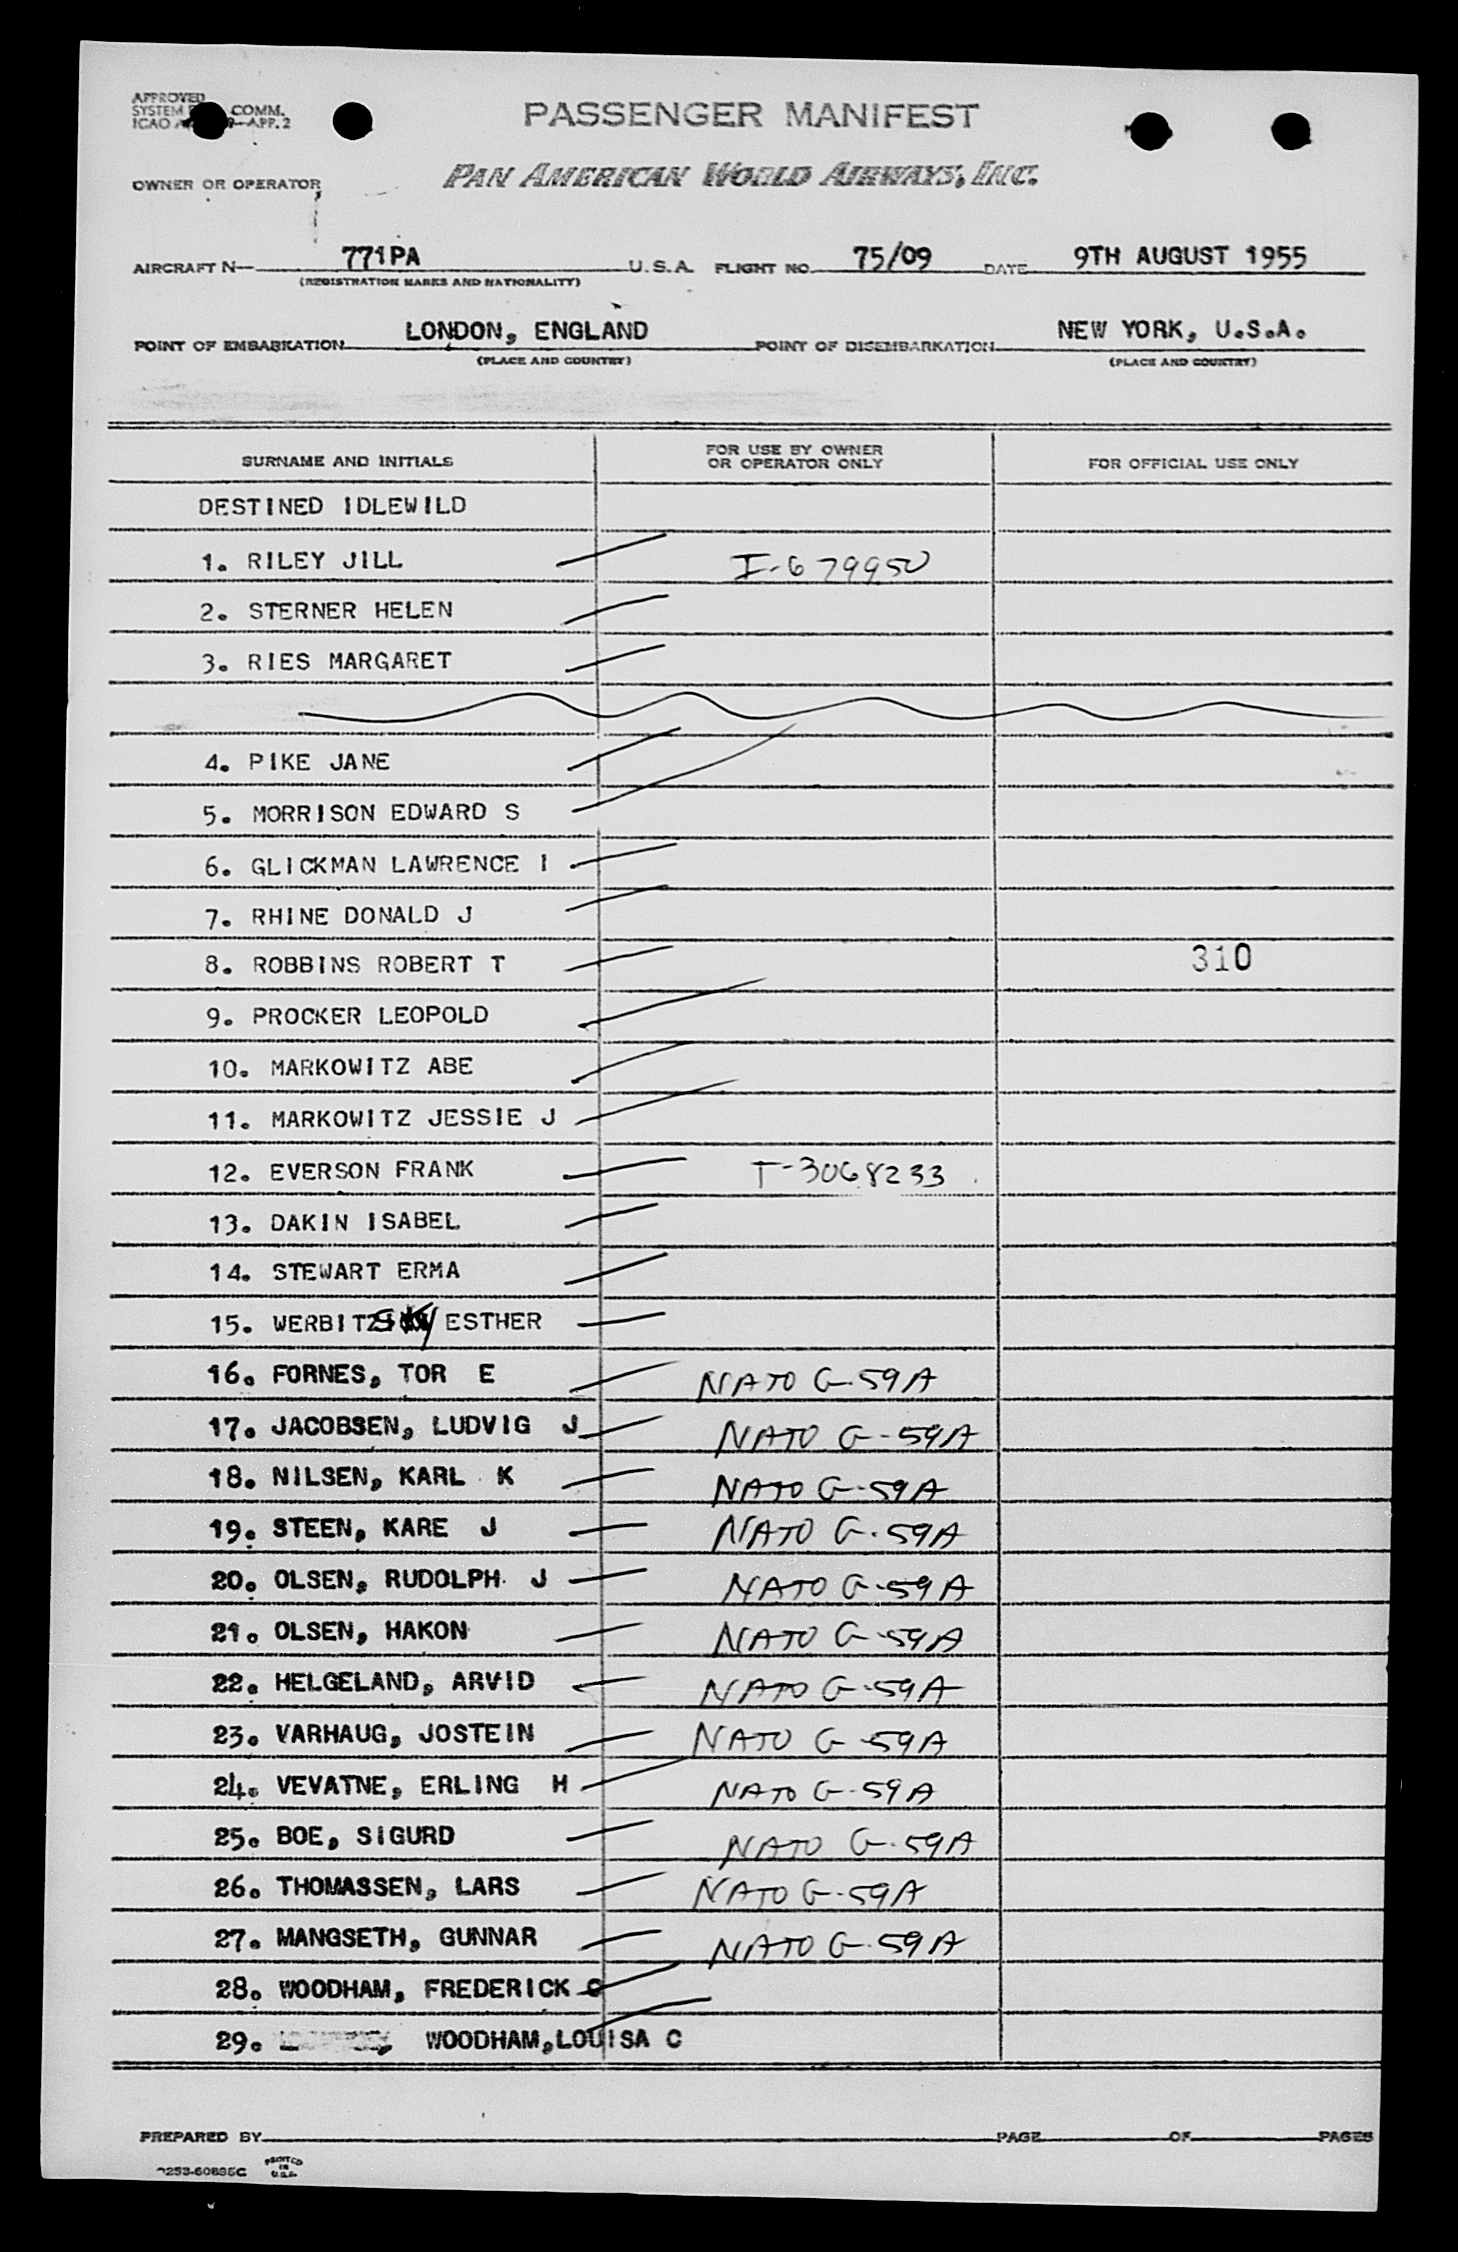 APPROVED
SYSTEM COMM.
ICAO APP. 2
PASSENGER MANIFEST
OWNER OR OPERATOR PAN AMERICAN WORLD AIRWAYS, INC.
AIRCRAFT N— 771PA U.S.A. FLIGHT NO. 75/09 DATE 9TH AUGUST 1955
(REGISTRATION MARKS AND NATIONALITY)
POINT OF EMBARKATION LONDON, ENGLAND POINT OF DISEMBARKATION NEW YORK, U.S.A.
(PLACE AND COUNTRY) (PLACE AND COUNTRY)
SURNAME AND INITIALS FOR USE BY OWNER OR OPERATOR ONLY FOR OFFICIAL USE ONLY
DESTINED IDLEWILD
1. RILEY JILL I-679950
2. STERNER HELEN
3. RIES MARGARET
4. PIKE JANE
5. MORRISON EDWARD S
6. GLICKMAN LAWRENCE I
7. RHINE DONALD J
8. ROBBINS ROBERT T 310
9. PROCKER LEOPOLD
10. MARKOWITZ ABE
11. MARKOWITZ JESSIE J
12. EVERSON FRANK T-3068233
13. DAKIN ISABEL
14. STEWART ERMA
15. WERBITZSKY ESTHER
16. FORNES, TOR E NATO G-59A
17. JACOBSEN, LUDVIG J NATO G-59A
18. NILSEN, KARL K NATO G-59A
19. STEEN, KARE J NATO G-59A
20. OLSEN, RUDOLPH J NATO G-59A
21. OLSEN, HAKON NATO G-59A
22. HELGELAND, ARVID NATO G-59A
23. VARHAUG, JOSTEIN NATO G-59A
24. VEVATNE, ERLING H NATO G-59A
25. BOE, SIGURD NATO G-59A
26. THOMASSEN, LARS NATO G-59A
27. MANGSETH, GUNNAR NATO G-59A
28. WOODHAM, FREDERICK C
29. WOODHAM, LOUISA C
PREPARED BY PAGE OF PAGES
PRINTED IN U.S.A.